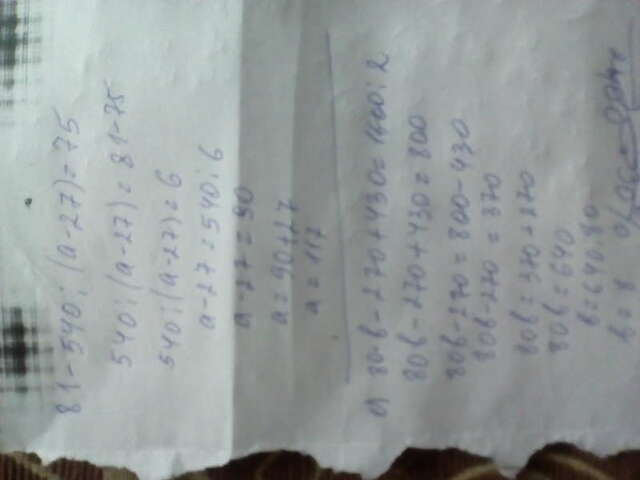 81-540:(a-27)=75
540:(a-27)=81-75
540:(a-27)=6
a-27=540:6
a-27=90
a=90+27
a=117
80b-270+430=1600:2
80b-270+430=800
80b-270=800-430
80b-270=370
80b=370+270
80b=640
b=640:80
b=8